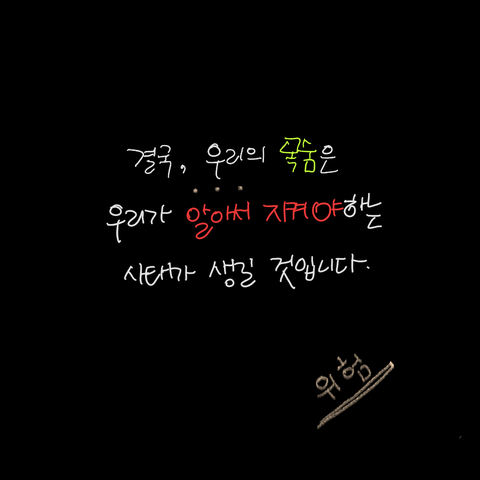 결국, 우리의 목숨은
우리가 알아서 지켜야하는
사태가 생길 것입니다.
위험